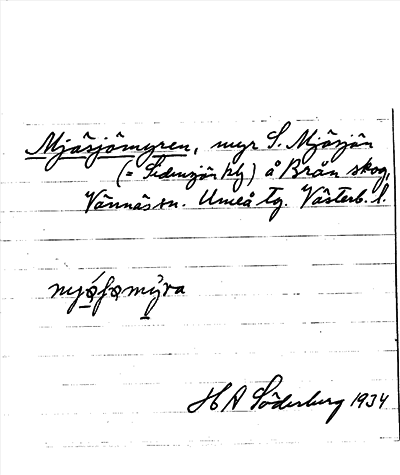 Mjösjömyren, myr S. Mjösjön
(= Sidensjön kbl) å Brån skog,
Vännäs sn. Umeå tg. Västerb. l.
HA Söderberg 1934